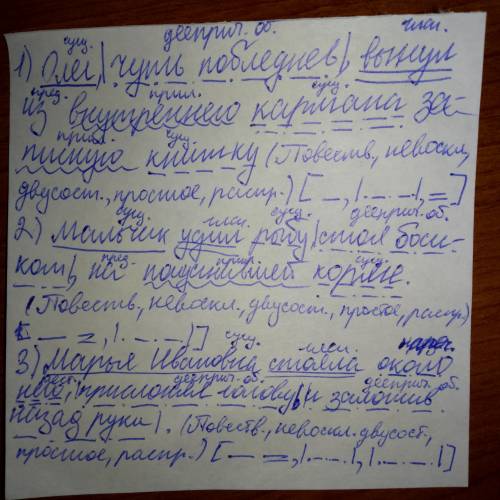 сущ. дееприч. об. глаг.
1) Олег, | чуть побледнев |, вынул
пред. прил. сущ.
из внутреннего кармана за-
прил. сущ.
писную книжку (Повеств., невоскл.,
двусост., простое, распр.) [ _ , |. _ . _ |, = ]
сущ. глаг. сущ. дееприч. об.
2) Мальчик удил рыбу, | стоя боси-
пред. прил. сущ.
ком |, на
(Повеств., невоскл. двусост., простое, распр.)
[ — = , |. _ . _ . |]
сущ. глаг.
3) Марья Ивановна стояла около
дееприч. об. дееприч. об.
неё, | прислонив голову | и заложив
назад руки |. (Повеств., невоскл. двусост.,
простое, распр.) [ — =, |. _ . _ . |, |. _ . _ . |]